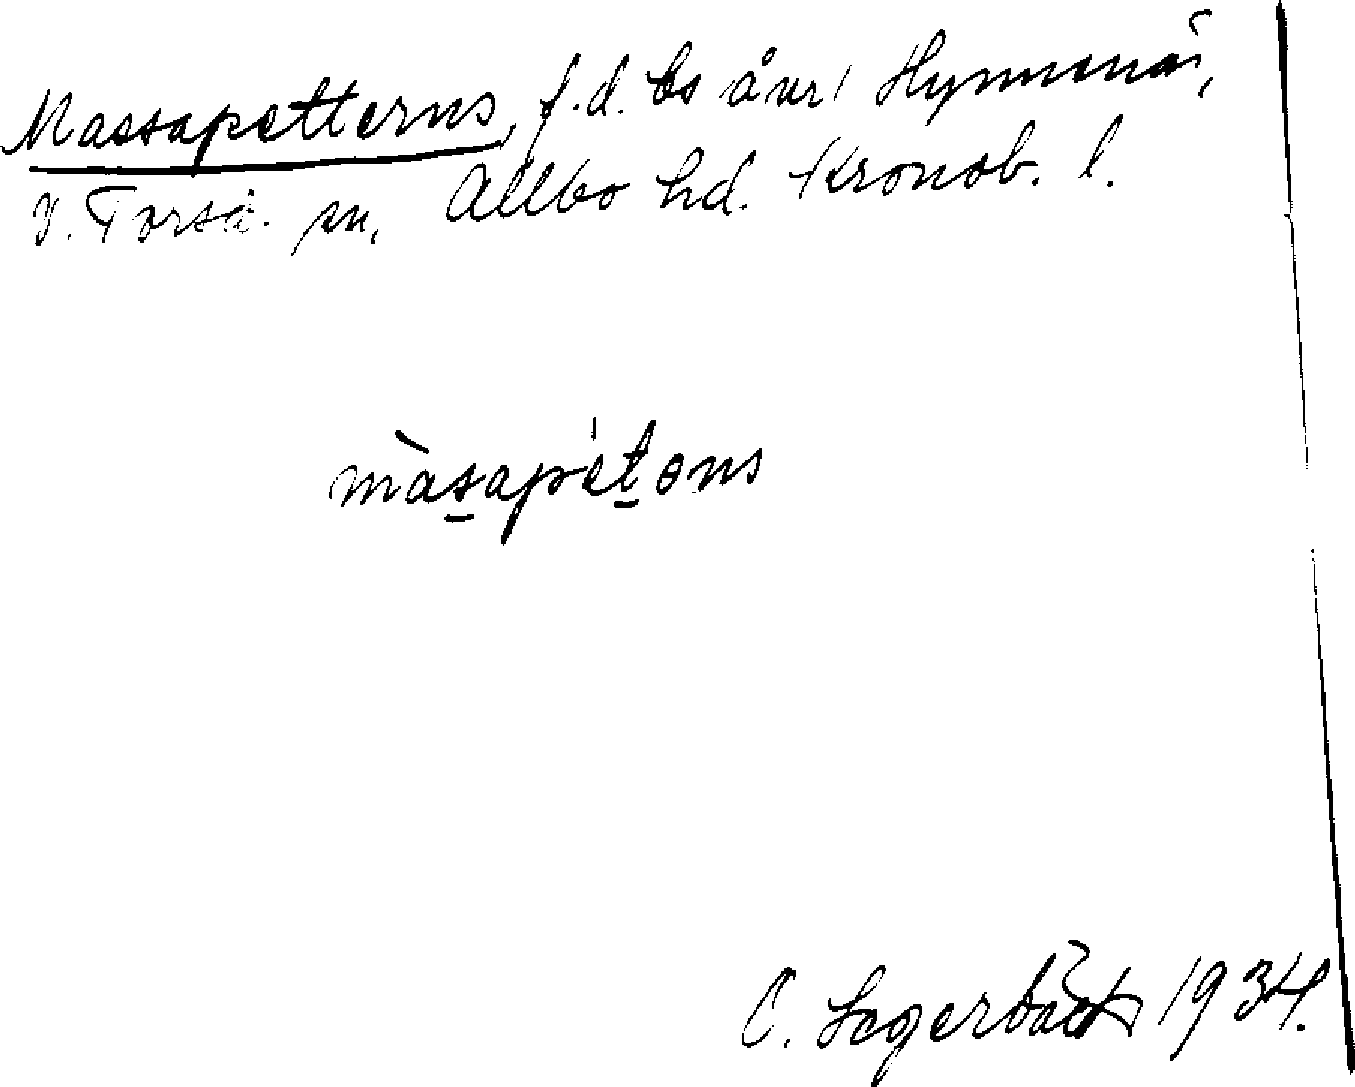 Massapetterns, f.d. bs å ur Hymmenäs,
V. Torså. sn, Allbo hd. Kronob. l.
màsapétəns
C. Segerbäck 1934.